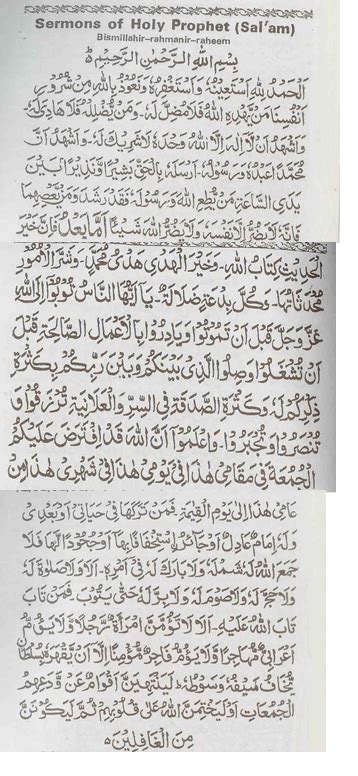 Sermons of Holy Prophet (Sal'am)
Bismillahir-rahmanir-raheem
بِسْمِ اللهِ الرَّحْمٰنِ الرَّحِيْمِ ه
اَلْحَمْدُ لِلّٰهِ اَسْتَعِيْنُهٗ وَاَسْتَغْفِرُهٗ وَنَعُوْذُ بِاللهِ مِنْ شُرُوْرِ
اَنْفُسِنَا مَنْ يَّهْدِهِ اللهُ فَلَا مُضِلَّ لَهٗ۔ وَمَنْ يُّضْلِلْهُ فَلَا هَادِيَ لَهٗ
وَاَشْهَدُ اَنْ لَّا اِلٰهَ اِلَّا اللهُ وَحْدَهٗ لَا شَرِيْكَ لَهٗ۔ وَاَشْهَدُ اَنَّ
مُحَمَّدًا عَبْدُهٗ وَرَسُوْلُهٗ۔ اَرْسَلَهٗ بِالْحَقِّ بَشِيْرًا وَّنَذِيْرًا بَيْنَ
يَدَىِ السَّاعَةِ مَنْ يُّطِعِ اللهَ وَرَسُوْلَهٗ۔ فَقَدْ رَشَدَ وَمَنْ يَّعْصِهِمَا
فَاِنَّهٗ لَا يَضُرُّ اِلَّا نَفْسَهٗ۔ وَلَا يَضُرُّ اللهَ شَيْئًا اَمَّا بَعْدُ فَاِنَّ خَيْرَ
الْحَدِيْثِ كِتَابُ اللهِ۔ وَخَيْرَ الْهَدْىِ هَدْىُ مُحَمَّدٍ۔ وَشَرُّ الْاُمُوْرِ
مُحْدَثَاتُهَا۔ وَكُلُّ بِدْعَةٍ ضَلَالَةٌ۔ يَا اَيُّهَا النَّاسُ تُوْبُوْا اِلَى اللهِ
عَزَّ وَجَلَّ قَبْلَ اَنْ تَمُوْتُوْا وَبَادِرُوْا بِالْاَعْمَالِ الصَّالِحَةِ قَبْلَ
اَنْ تُشْغَلُوْا وَصِلُوا الَّذِىْ بَيْنَكُمْ وَبَيْنَ رَبِّكُمْ بِكَثْرَةِ
ذِكْرِكُمْ لَهٗ۔ وَكَثْرَةِ الصَّدَقَةِ فِى السِّرِّ وَالْعَلَانِيَةِ تُرْزَقُوْا وَ
تُنْصَرُوْا وَتُجْبَرُوْا۔ وَاعْلَمُوْا اَنَّ اللهَ قَدِ افْتَرَضَ عَلَيْكُمُ
الْجُمُعَةَ فِىْ مَقَامِىْ هٰذَا فِىْ يَوْمِىْ هٰذَا فِىْ شَهْرِىْ هٰذَا مِنْ
عَامِىْ هٰذَا اِلٰى يَوْمِ الْقِيٰمَةِ۔ فَمَنْ تَرَكَهَا فِىْ حَيَاتِىْ اَوْ بَعْدِىْ
وَلَهٗ اِمَامٌ عَادِلٌ اَوْ جَائِرٌ اِسْتِخْفَافًا بِهَا اَوْ جُحُوْدًا لَّهَا فَلَا
جَمَعَ اللهُ لَهٗ شَمْلَهٗ وَلَا بَارَكَ لَهٗ فِىْ اَمْرِهٖ۔ اَلَا وَلَا صَلٰوةَ لَهٗ
وَلَا حَجَّ لَهٗ وَلَا صَوْمَ لَهٗ وَلَا بِرَّ لَهٗ حَتّٰى يَتُوْبَ۔ فَمَنْ تَابَ
تَابَ اللهُ عَلَيْهِ۔ اَلَا لَا تَؤُمَّنَّ امْرَأَةٌ رَّجُلًا وَّلَا يَؤُمَّ
اَعْرَابِىٌّ مُّهَاجِرًا وَّلَا يَؤُمَّ فَاجِرٌ مُّؤْمِنًا اِلَّا اَنْ يَّقْهَرَهٗ بِسُلْطَانٍ
يُّخَافُ سَيْفُهٗ وَسَوْطُهٗ ط لَيَنْتَهِيَنَّ اَقْوَامٌ عَنْ وَّدْعِهِمُ
الْجُمُعَاتِ اَوْ لَيَخْتِمَنَّ اللهُ عَلٰى قُلُوْبِهِمْ ثُمَّ لَيَكُوْنُنَّ
مِنَ الْغَافِلِيْنَ ه